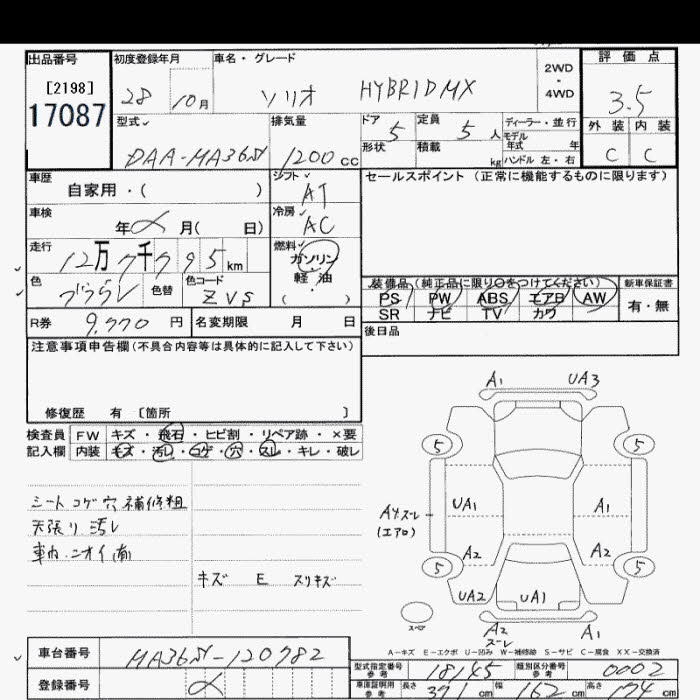 出品番号 初度登録年月 車名・グレード 2WD・4WD 評価点
[2198]
17087 28 10月 ソリオ HYBRID MX 3.5
型式 排気量 ドア 5 定員 5人 ディーラー・並行 外装 内装
モデル年式 年
DAA-MA36S 1200cc 形状 積載 kg ハンドル 左・右 C C
車歴 シフト セールスポイント（正常に機能するものに限ります）
自家用・（ ） AT
車検 冷房
年 月（ 日） AC
走行 燃料
12万7千795km ガソリン
色 色替 色コード 軽油
ZVS （ ）
装備品（純正品に限り○をつけてください） 新車保証書
PS PW ABS エアB AW 有・無
SR ナビ TV カワ
R券 9,770円 名変期限 月 日 後日品
注意事項申告欄（不具合内容等は具体的に記入して下さい）
修復歴 有 〔箇所 〕
検査員 FW キズ・飛石・ヒビ割・リペア跡・×要
記入欄 内装 キズ・汚レ・コゲ・穴・スレ・キレ・破レ
シートコゲ穴補修粗
天張り汚レ
車内ニオイ有
キズ E スリキズ
A1 UA3
5 5
UA1 A1
A4スレ
(エアロ)
A2 A2
5 5
UA2 UA1
スペア
A2 スレ A1
A－キズ E－エクボ U－凹み W－補修跡 S－サビ C－腐食 XX－交換済
車台番号 MA36S-120782
登録番号
型式指定番号 参考 18145 類別区分番号 参考 0002
車庫証明用 参考 長さ 371cm 幅 162cm 高さ 174cm